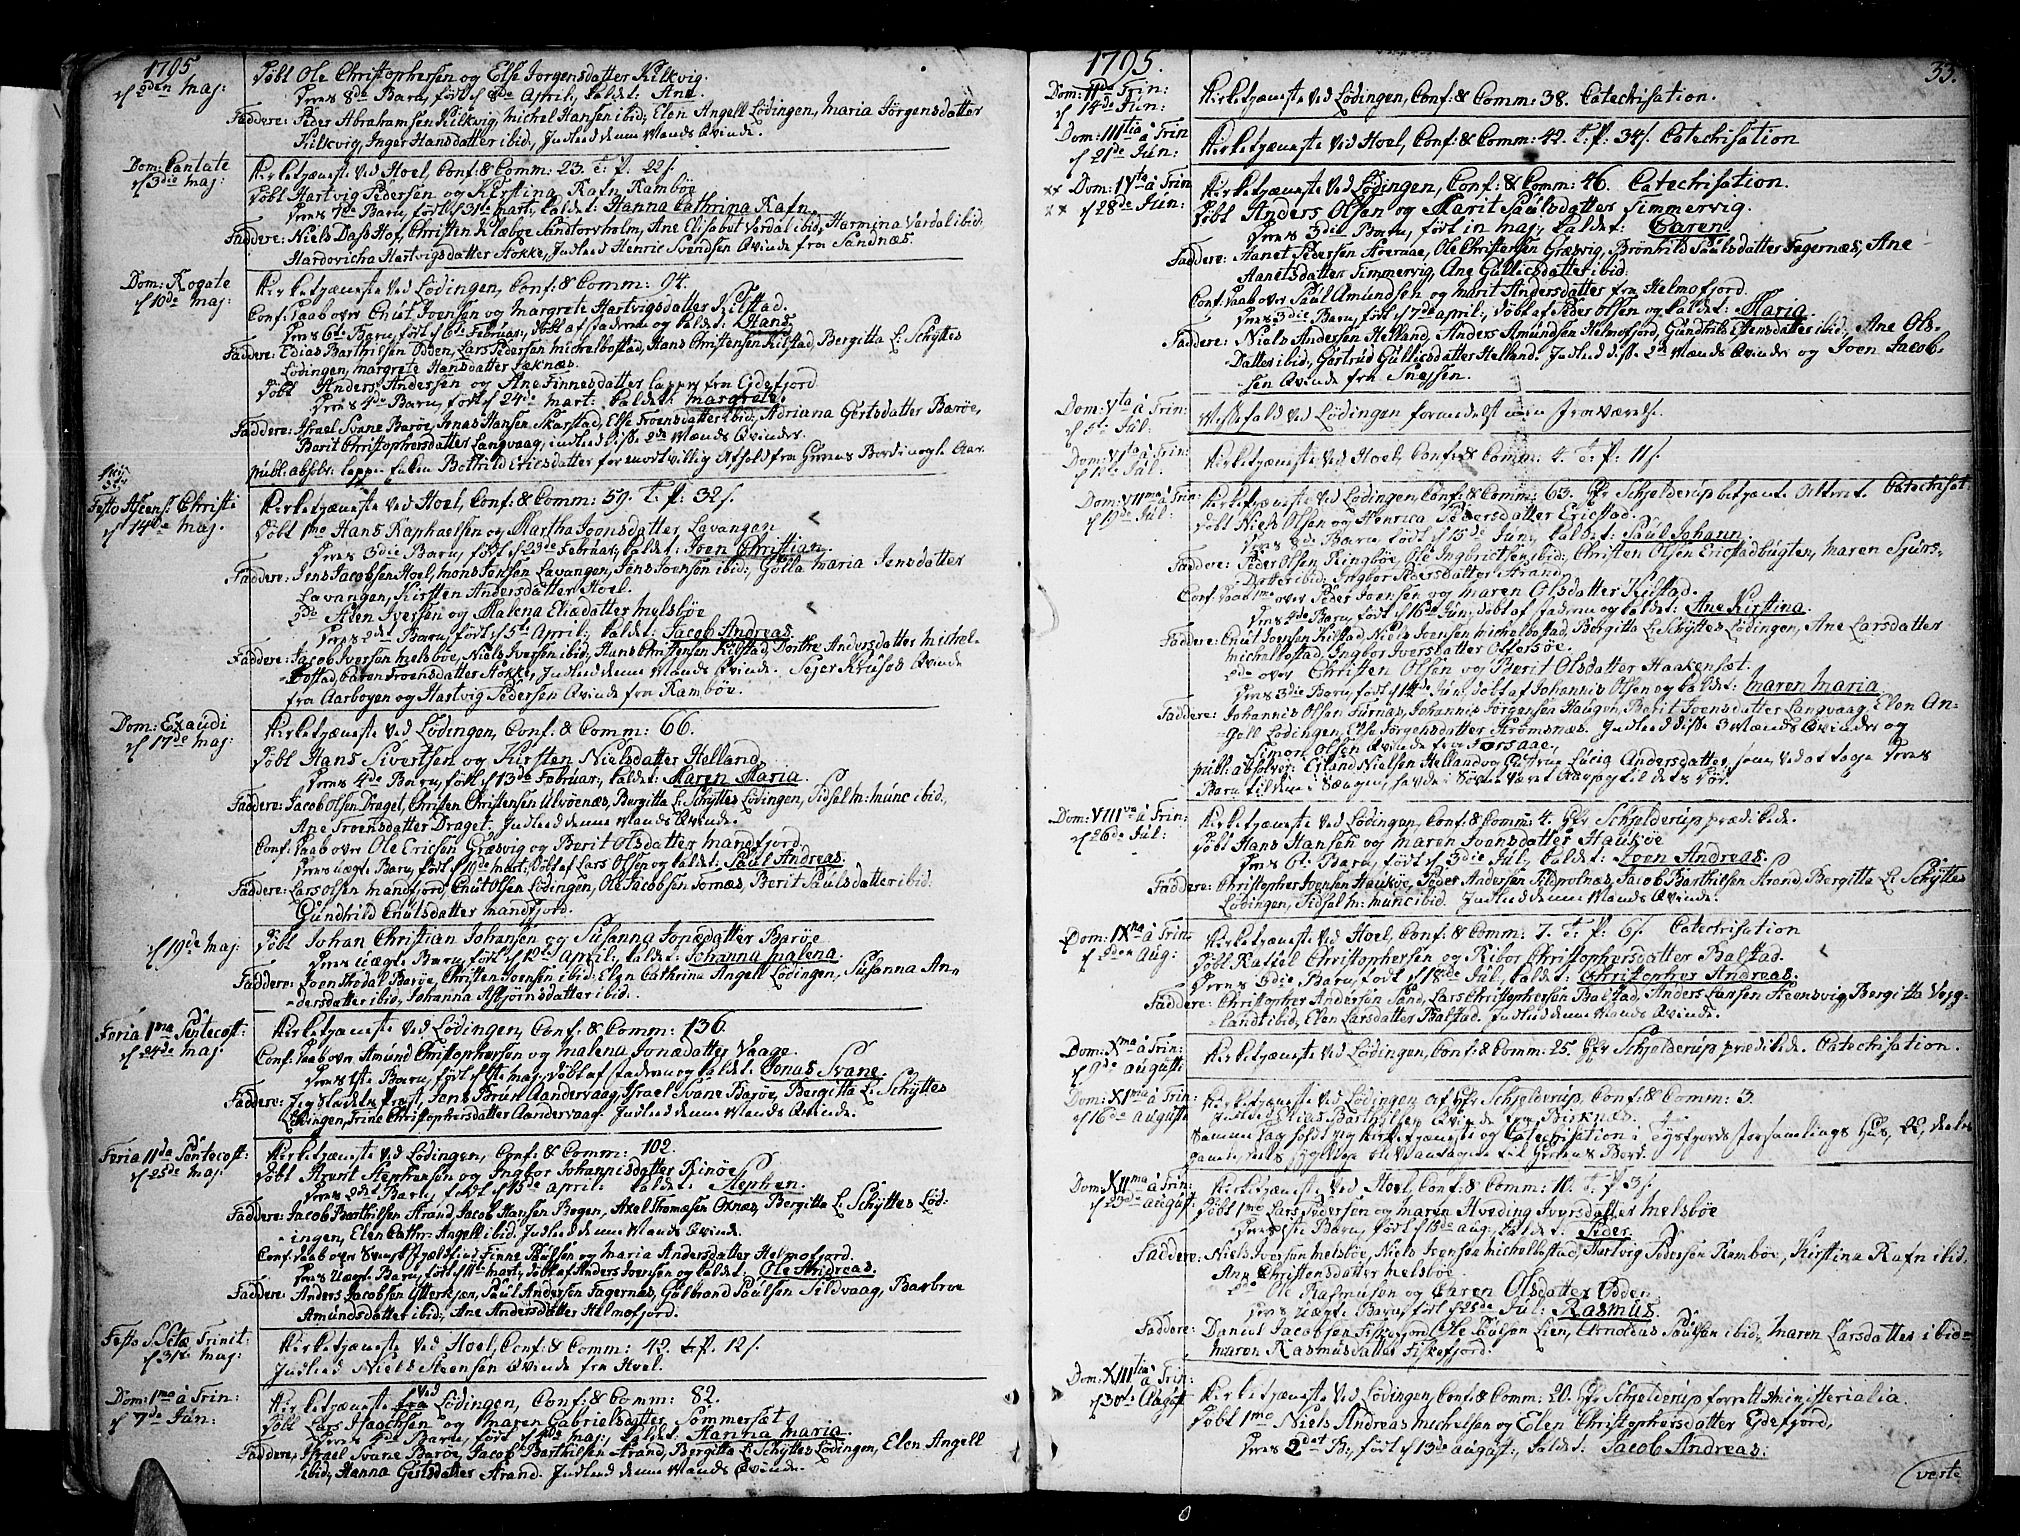 1795
d 2den Maj:
Døbt Ole Christophersen og Else Jorgensdatter Kilkvig.
Deres 8de Barn, født d 8de April, kaldet: Ane
Faddere: Peder Abrahamsen Kilkvig, Michel Hansen ibid, Elen Angell Lødingen, Maria Jörgensdatter
Kilkvig, Inger Hansdatter ibid, Indled denne Mands Qvinde.
Dom: Cantate
d 3die Maj:
Kirketjæneste ved Hoel, Conf: & Comm: 23. T. P. 22 s.
Døbt Hartvig Pedersen og Kirstina Rafn Rambøe
Deres 7de Barn, født d 31de Mart, kaldet: Hanna Cathrina Rafn,
Faddere: Niels Dass Hof, Christen Klæboe Sandtorvholm, Ane Elisabet Verdal ibid, Harmina Verdal ibid,
Hardovicha Hartvigsdatter Hokke, Indled Henric Svendsens Qvinde fra Sandnæs.
Dom: Rogate
d 10de Maj:
Kirketjæneste ved Lødingen, Conf: & Comm: 94.
Conf: Daab over Cnut Joensen og Margrete Hartvigsdatter Kilstad.
Deres 6te Barn, født d 6te Februar, døbt af Faderen og kaldet: Hans
Faddere: Edias Barthilsen Odden, Lars Pedersen Michelbostad, Hans Christensen Kilstad, Bergitta L: Schyttes
Lødingen, Margrete Hansdatter Læknæs.
Døbt Anders Andersen og Ane Finnesdatter Lapper fra Eidefjord
Deres 4de Barn, født d 24de Mart: kaldet: Margrete
Faddere: Israel Svane Barøe, Jonas Hansen Skarstad, Else Troensdatter ibid, Adriana Gertsdatter Barøe,
Berit Christophersdatter Langvaag, Indled disse 2de Mænds Qvinder.
publ: absolv: Lappe Enken Bothild Ericsdatter for modvillig Afhold fra Guds Bord i nogle Aar.
Festo Ascens: Christi
d 14de Maj.
Kirketjæneste ved Hoel, Conf: & Comm: 59. T. P: 32 s.
Døbt 1mo Hans Raphaelsen og Martha Joensdatter Lavangen
Deres 3die Barn, født d 23de Februar, kaldet: Joen Christian
Faddere: Jens Jacobsen Hoel, Mons Jensen Lavangen, Jens Joensen ibid, Golla Maria Jensdatter
Lavangen, Kirsten Andersdatter Hoel.
2do Aten Iversen og Malena Eliædatter Melsbøe
Deres 2det Barn, født d 5te April; kaldet: Jacob Andreas
Faddere: Jacob Iversen Melsbøe, Niels Iversen ibid, Hans Christensen Kilstad, Dorthe Andersdatter Michel-
bostad, Caren Troensdatter Hokke, Indled denne Mands Qvinde. Sejer Krusos Qvinde
fra Aarbogen og Hartvig Pedersens Qvinde fra Rambøe.
Dom: Exaudi
d 17de Maj:
Kirketjæneste ved Lødingen, Conf: & Comm: 66.
Døbt Hans Sivertsen og Kirsten Nielsdatter Helland
Deres 4de Barn, født d 13de Februar; kaldet: Maren Maria.
Faddere: Jacob Olsen Draget, Christen Christensen Ulvøenæs, Bergitta L: Schyttes Lødingen, Sidsel M: Munc ibid,
Ane Troensdatter Draget. Indled denne Mands Qvinde.
Conf: Daab over Ole Ericsen Græsvig og Berit Olsdatter Mandfjord.
Deres Uægte Barn, født d 11de Mart; døbt af Lars Olsen og kaldet: Paul Andreas.
Faddere: Lars Olsen Mandfjord, Cnut Olsen Lødingen, Ole Jacobsen Fornæs, Berit Paulsdatter ibid.
Gundhild Cnutsdatter Mandfjord.
d 19de Maj
Døbt Johan Christian Johansen og Susanna Topædatter Barøe
Deres Uægte Barn, født d 12te April; kaldet: Johanna Malena.
Faddere: Joen Hodal Barøe, Christen Joensen ibid; Elen Cathrina Angell Lødingen, Susanna An-
dersdatter ibid, Johanna Asbjørnsdatter ibid.
Feria 1ma Pentecost:
d 24de Maj:
Kirketjæneste ved Lødingen, Conf: & Comm: 136.
Conf: Daab over Amund Christophersen og Malena Jonædatter Vaage.
Deres 1ste Barn, født d 1te Maj, døbt af Faderen og kaldet: Jonas Svane.
Faddere: Jeg Stædets Præst, Jens Bruun Sandervaag, Israel Svane Barøe, Bergitta L: Schyttes
Lødingen, Trine Christophersdatter Sandervaag. Indled denne Mands Qvinde.
Feria 11da Pentecost:
d 25de Maj.
Kirketjæneste ved Lødingen, Conf: & Comm: 102.
Døbt Arent Stephensen og Ingbor Johannisdatter Rinøe
Deres 2det Barn, født d 13de April: kaldet: Stephen.
Faddere: Jacob Barthilsen Strand, Jacob Hansen Bogen, Axel Thomæsen Oxnæs, Bergitta L: Schyttes Lød-
ingen, Elen Cathr: Angell ibid. Indled denne Mands Qvinde.
Conf: Daab over Svensk Fjeldfind Finne Paulsen og Maria Andersdatter Helmofjord.
Deres Uægte Barn, født d 11te Mart; døbt af Anders Joensen og kaldet: Ole Andreas.
Faddere: Anders Jacobsen Ytterkjæn, Paul Andersen Fagernæs, Gulbrand Paulsen Sildvaag, Barbroe
Amundsdatter ibid; Ane Andersdatter Helmofjord.
Festo SSctæ Trinit:
d 31te Maj:
Kirketjæneste ved Hoel, Conf: & Comm: 42. T. P. 12 s.
Indled Niels Steensens Qvinde fra Hoel.
Dom: 1ma à Trin:
d 7de Jun:
Kirketjæneste ved Lødingen, Conf: & Comm: 82.
Døbt Lars Isachsen og Maren Gabrielsdatter Sommersæt
Deres Barn, født d Maj: kaldet: Hanna Maria.
Faddere, Israel Svane Barøe, Jacob Barthilsen Strand, Bergitta L: Schyttes Lødingen, Elen Angell
ibid, Hanna Gertsdatter Strand. Indled denne Mands Qvinde.
1795.
33.
Dom: 11da à Trin:
d 14de Jun:
Kirketjæneste ved Lødingen, Conf: & Comm: 38. Catechisation.
Dom: 111tia à Trin
d 21de Jun:
Kirketjæneste ved Hoel, Conf: & Comm: 42. T. P: 34 s. Catechisation
Dom: 1Vta à Trin
d 28de Jun:
Kirketjæneste ved Lødingen, Conf: & Comm: 46. Catechisation.
Døbt Anders Olsen og Marit Paulsdatter Simmervig.
Deres 3die Barn, født in Maj; kaldet: Caren
Faddere: Aanet Pedersen Storaae, Ole Christensen Græsvig, Brønhild Paulsdatter Fagernæs, Ane
Aanetsdatter Simmervig, Ane Gullicsdatter ibid.
Conf: Daab over Paul Amundsen og Marit Andersdatter fra Helmofjord.
Deres 3die Barn, født d 7de April; døbt af Peder Olsen og kaldet: Maria.
Faddere: Niels Andersen Helland, Anders Amundsen Helmofjord, Gundhild Ellensdatter ibid, Ane Ols-
datter ibid, Gørtrud Gullicsdatter Helland. Indled disse 2de Mænds Qvinder og Joen Jacob-
sen Qvinde fra Snessen.
Dom: Vta à Trin:
d 5te Jul:
Messefald ved Lødingen formedelst min Fraværelse.
Dom: VIta à Trin:
d 12te Jul:
Kirketjæneste ved Hoel, Conf: & Comm: 4. T. P: 11 s.
Dom: VIIma à Trin:
d 19de Jul:
Kirketjæneste ved Lødingen, Conf: & Comm: 63. Hr Schjelderup betjente Alteret. Catechisat
Døbt Niels Olsen og Henrica Pedersdatter Ericstad.
Deres 2de Barn, født d 15de Jun; kaldet: Paul Johann.
Faddere: Peder Olsen Ringbøe, Ole Ingbrictsen ibid; Christen Olsen Ericstadbugten, Maren Sjurs-
datter ibid, Ingbor Pedersdatter Strand.
Conf: Daab 1mo over Peder Joensen og Maren Olsdatter Kilstad.
Deres 4de Barn, født d 16de Jun; døbt af Faderen og kaldet: Ane Kirstina.
Faddere: Cnut Joensen Kilstad, Niels Joensen Michelbostad, Bergitta L: Schyttes Lødingen, Ane Larsdatter
Michelbostad, Ingbor Iversdatter Offersøe.
2do over Christen Olsen og Berit Olsdatter Haakensæt.
Deres 3die Barn, født d 14de Jun, døbt af Johannis Olsen og kaldet: Maren Maria
Faddere: Johannis Olsen Furnæs, Johannis Jörgensen Haugen, Berit Joensdatter Langvaag, Elen An-
gell Lødingen, Else Jørgensdatter Strømsnæs. Indled disse 3 Mænds Qvinder og
Simon Olsen Qvinde fra Forsaae,
publ: absolver: Erland Nielsen Helland og Gutrue Lucia Andersdatter, som, ved at tage deres
Barn til dem i Sængen, havde i Søvne været Aarsag til dets Død.
Dom: VIIIva à Trin:
d 26de Jul:
Kirketjæneste ved Lødingen, Conf: & Comm: 4. Hr Schjelderup prædikede.
Døbt Hans Hansen og Maren Joensdatter Haukøe
Deres 6te Barn, født d 3die Jul; kaldet: Joen Andreas.
Faddere: Christopher Joensen Haukøe, Peder Andersen Sildpolnæs, Jacob Barthilsen Strand, Bergitta L: Schyttes
Lødingen, Sidsel M: Munc ibid. Indled denne Mands Qvinde.
Dom: IXna à Trin:
d 2den Aug:
Kirketjæneste ved Hoel, Conf: & Comm: 7. T. P: 6 s. Catechisation
Døbt Rafael Christophersen og Ribor Christophersdatter Balstad.
Deres 3die Barn, født d 18de Jul, kaldet: Christopher Andreas.
Faddere: Christopher Andersen Sand, Lars Christophersen Balstad, Anders Larsen Steensvig, Bergitta Vog-
landt ibid, Elen Larsdatter Balstad. Indled denne Mands Qvinde.
Dom: Xma à Trin:
d 9de Augusti
Kirketjæneste ved Lødingen, Conf: & Comm: 25. Hr Schjelderup prædikede. Catechisation.
Dom: XIma à Trin:
d 16de Augusti
Kirketjæneste ved Lødingen af Hr Schjelderup, Conf: & Comm: 3.
Indled Elias Barthilsens Qvinde fra Birknæs.
Samme Dag holdt jeg Kirketjæneste og Catechisation i Tysfjords Forsamlings Huus,
gamle, Guds Bord.
Dom: XIIma à Trin:
d 23de August.
Kirketjæneste ved Hoel, Conf: & Comm: 10. T. P 3 s.
Døbt 1mo Lars Pedersen og Maren Hveding Iversdatter Melsbøe
Deres 1ste Barn, født d 13de Aug; kaldet: Peder
Faddere: Niels Iversen Melsbøe, Niels Joensen Michelbostad, Hartvig Pedersen Rambøe, Kirstina Rafn ibid.
Ane Christensdatter Melsbøe.
2do Ole Rasmusen og Caren Olsdatter Odden
Deres Uægte Barn, født d 25de Jul: Rasmus,
Faddere: Daniel Jacobsen Fiskefjord, Ole Paulsen Lien, Arnoldus Paulsen ibid, Maren Larsdatter ibid,
Maren Rasmusdatter Fiskefjord.
Dom: XIIItia à Trin:
d 30te August
Kirketjæneste ved Lødingen, Conf: & Comm: 20. Hr Schjelderup forrett Ministerialia.
Døbt 1mo Niels Andreas Michelsen og Elen Christophersdatter Eidefjord,
Deres 2det B:, født d 13de August; kaldet: Jacob Andreas.
(verte